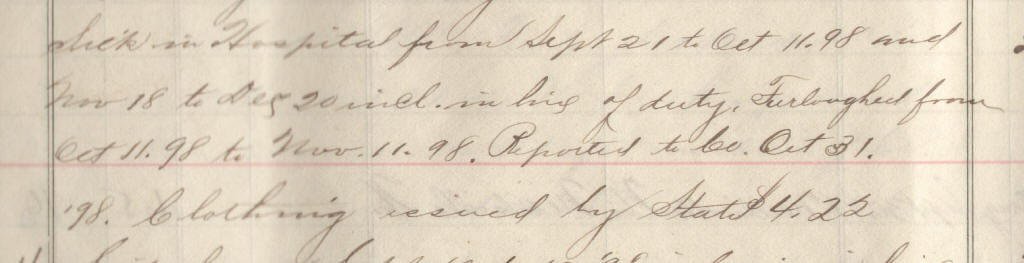 Sick in Hospital from Sept 21 to Oct 11.98 and
Nov 18 to Dec 20 incl. in line of duty. Furloughed from
Oct 11. 98 to Nov. 11. 98. Reported to Co. Oct 31.
'98. Clothing issued by State $4.22